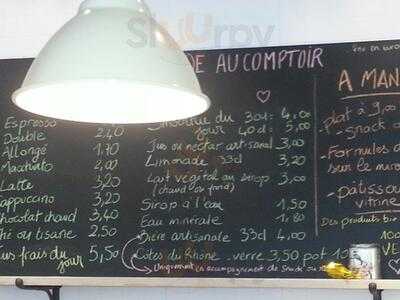 Sirurpy
DE AU COMPTOIR
Prix en euros
A MAN
Espresso
Double 2,40
Allongé 1,70
Macchiato 2,00
Latte 3,20
Cappuccino 3,20
Chocolat chaud 3,40
Thé ou tisane 2,50
jus frais du jour 5,50
Smoothie du jour 30cl: 4,00
40cl: 5,00
Jus ou nectar artisanal 3,00
Limonade 33cl 3,20
Lait végétal au sirop 3,00
(chaud ou froid)
Sirop à l'eau 1,50
Eau minérale 1,80
Bière artisanale 33cl 4,00
Côtes du Rhône: verre 3,50 pot
Uniquement en accompagnement de snack ou
- plat à 9,00
- snack
- Formules
sur le
- pâtisso
vitrine
Des produits bio
VE